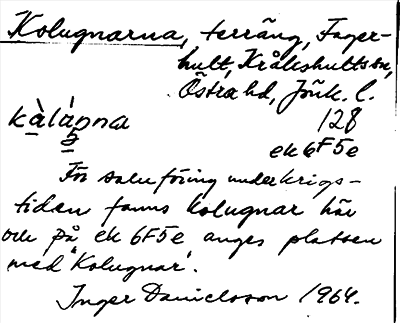 Kolugnarna, terräng, Fager-
hult, Kråkshults sn,
Östra hd, Jönk. l.
kàlánna
5
128
ek 6F5e
För saluföring under krigs-
tiden fanns kolugnar här
och på ek 6F5e anges platsen
med 'Kolugnar'.
Inger Danielsson 1964.